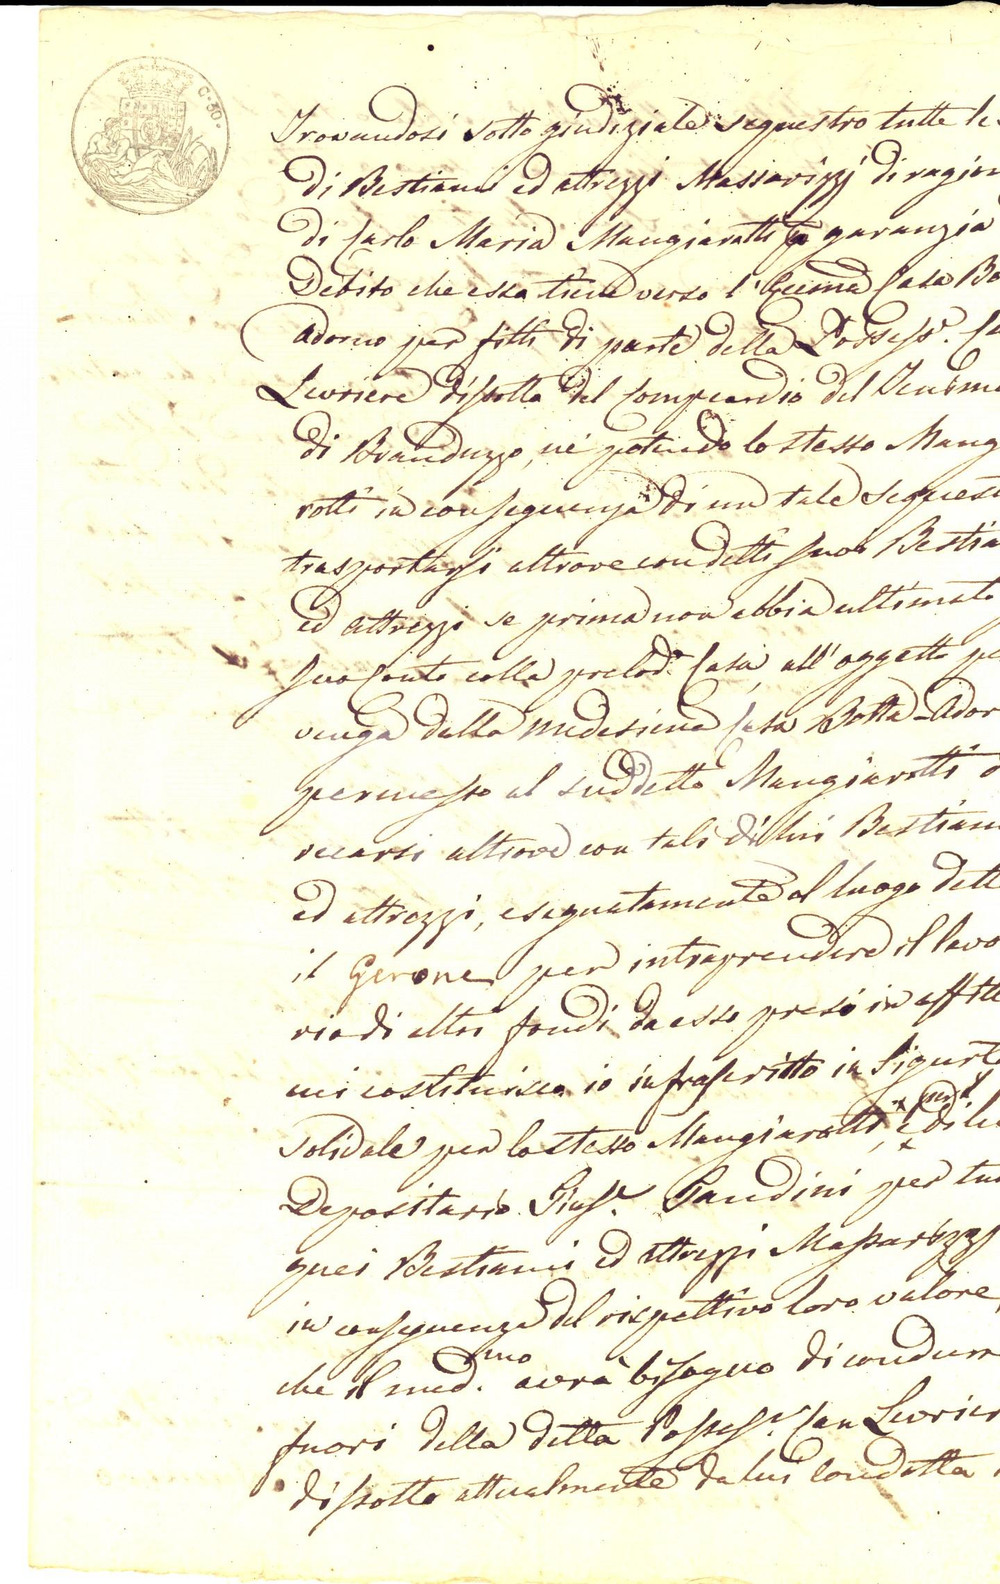 C. 50.
Trovandosi sotto giudiziale sequestro tutte le
di Bestiami ed attrezzi Massarizzj di ragion
di Carlo Maria Mangiarotti a garanzia
Debito che essa tiene verso l' Ecc.ma Casa Bo
Adorno per fitti di parte della Possess.e Ca
Levriere dissotto del Compendio del Tenime
di Branduzzo, nè potendo lo stesso Mang
rotti in conseguenza di un tale sequest
trasportarsi altrove con detti suoi Bestia
ed attrezzi se prima non abbia ultimato
suo Conto colla prelod.a Casa, all' oggetto pe
venga dalla medesima Casa Botta-Ador
permesso al suddetto Mangiarotti d
recarsi altrove con tali di lui Bestiam
ed attrezzi, e segnatamente al luogo dett
il Gerone, per intraprendere il lavo
rio di altri fondi da esso presi in affitt
mi costituisco io infrascritto in Sigurt
Solidale per lo stesso Mangiarotti, e di lu
Depositario Gius.e Gandini per tut
quei Bestiami ed attrezzi Massarizzj
in conseguenza del rispettivo loro valore,
che il med.mo avrà bisogno di condurr
fuori della detta Possess.e Can Levrier
dissotto attualmente da lui condotta